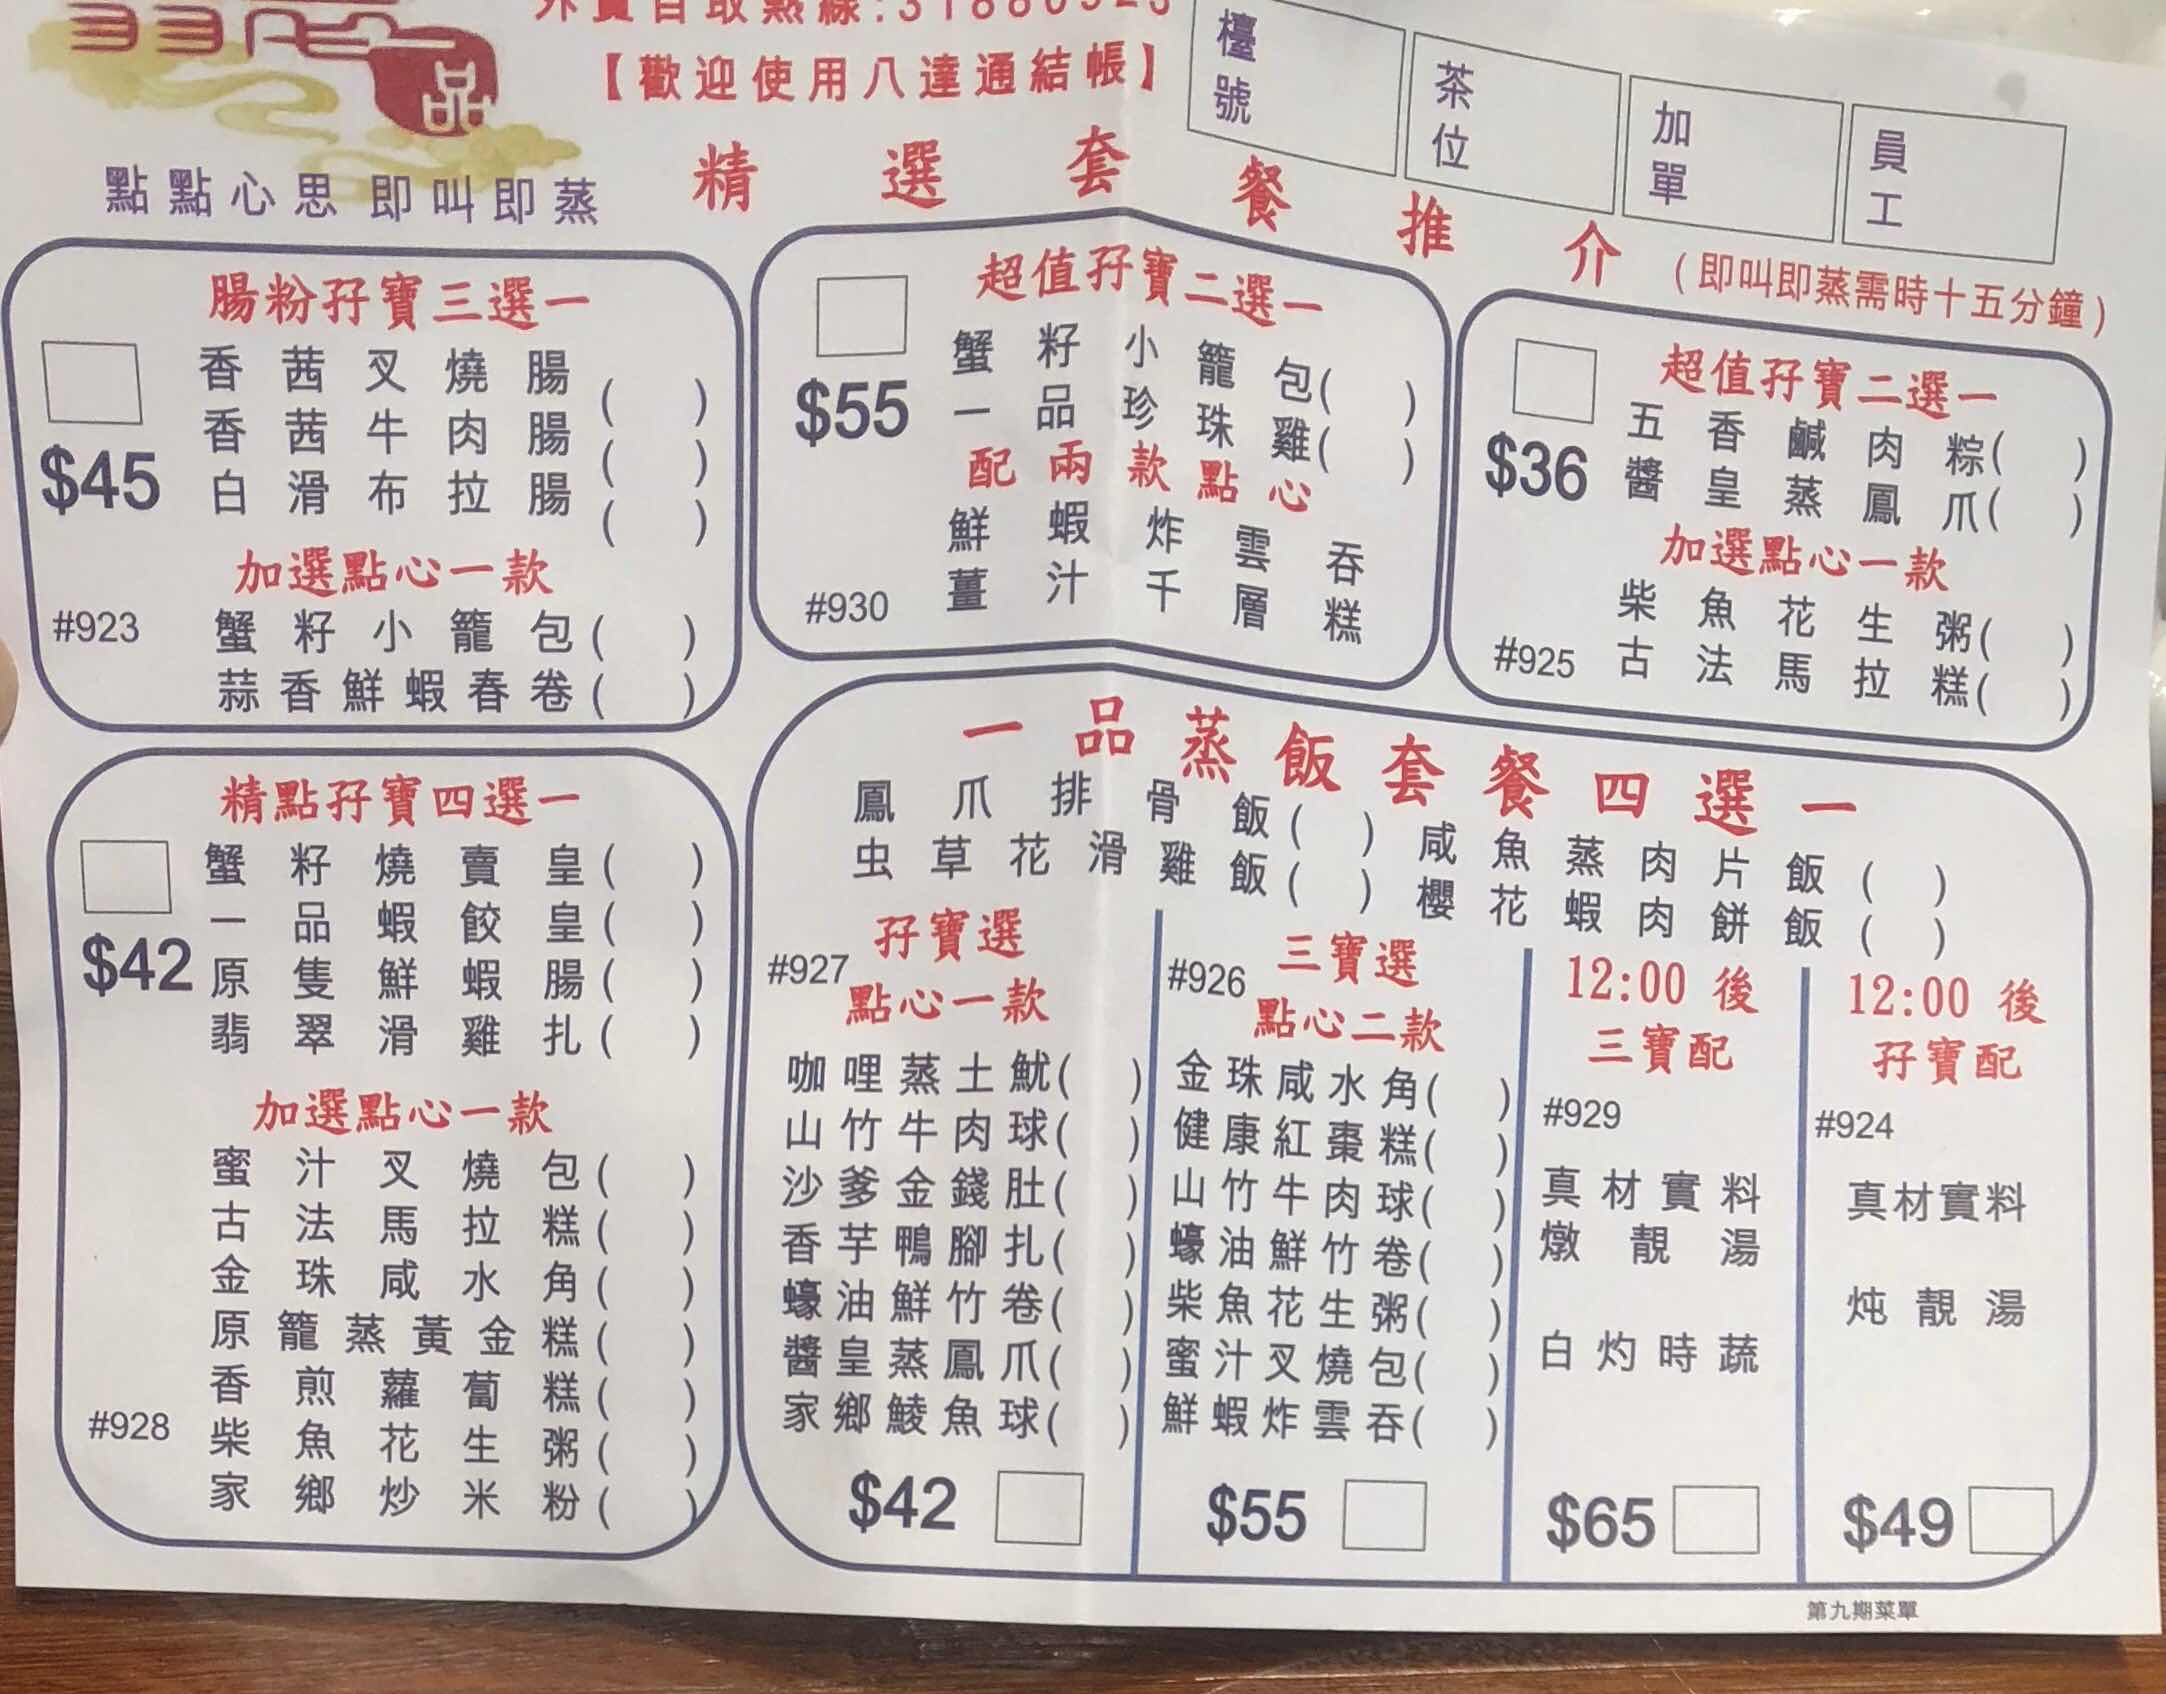 外賣自取熱線:31880923
【歡迎使用八達通結帳】
檯號
茶位
加單
員工
點點心思 即叫即蒸
精選套餐推介
(即叫即蒸需時十五分鐘)
腸粉孖寶三選一
香茜叉燒腸( )
香茜牛肉腸( )
$45
白滑布拉腸( )
加選點心一款
#923
蟹籽小籠包( )
蒜香鮮蝦春卷( )
超值孖寶二選一
蟹籽小籠包( )
$55
一品珍珠雞( )
配兩款點心
鮮蝦炸雲吞
#930
薑汁千層糕
超值孖寶二選一
五香鹹肉粽( )
$36
醬皇蒸鳳爪( )
加選點心一款
柴魚花生粥( )
#925
古法馬拉糕( )
精點孖寶四選一
蟹籽燒賣皇( )
一品蝦餃皇( )
$42
原隻鮮蝦腸( )
翡翠滑雞扎( )
加選點心一款
蜜汁叉燒包( )
古法馬拉糕( )
金珠咸水角( )
原籠蒸黃金糕( )
香煎蘿蔔糕( )
#928
柴魚花生粥( )
家鄉炒米粉( )
一品蒸飯套餐四選一
鳳爪排骨飯( ) 咸魚蒸肉片飯( )
虫草花滑雞飯( ) 櫻花蝦肉餅飯( )
#927
孖寶選
點心一款
咖哩蒸土魷( )
山竹牛肉球( )
沙爹金錢肚( )
香芋鴨腳扎( )
蠔油鮮竹卷( )
醬皇蒸鳳爪( )
家鄉鯪魚球( )
$42
#926
三寶選
點心二款
金珠咸水角( )
健康紅棗糕( )
山竹牛肉球( )
蠔油鮮竹卷( )
柴魚花生粥( )
蜜汁叉燒包( )
鮮蝦炸雲吞( )
$55
12:00 後
三寶配
#929
真材實料
燉靚湯
白灼時蔬
$65
12:00 後
孖寶配
#924
真材實料
炖靚湯
$49
第九期菜單